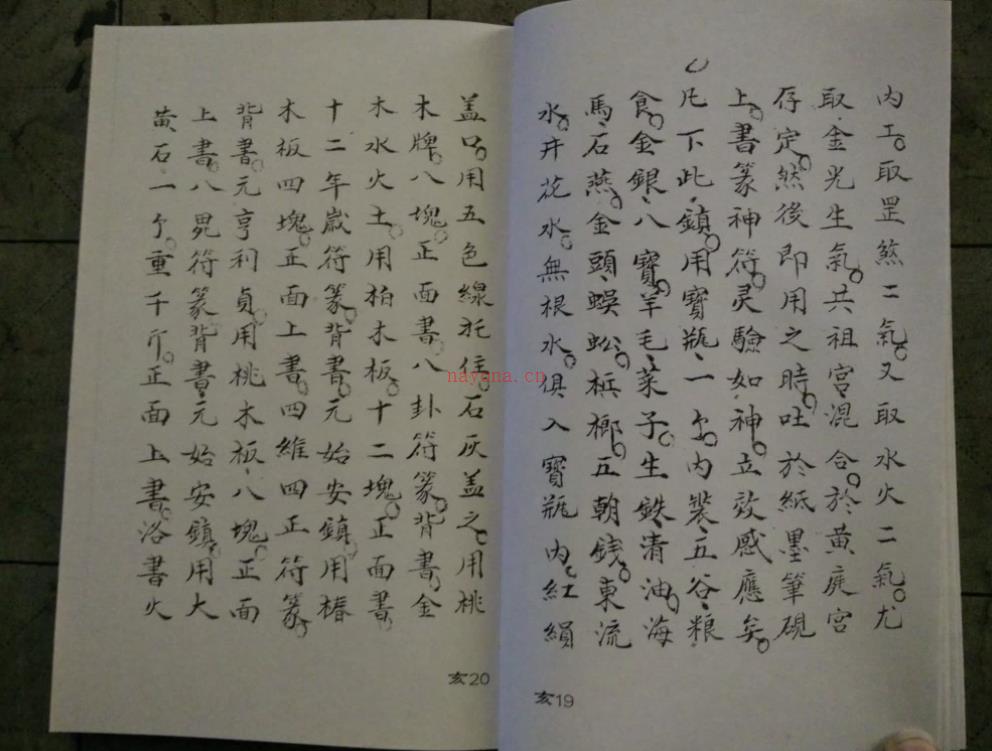 内工。取罡煞二氣。又取水火二氣。尤
取金光生氣。共祖宫混合。於黄庭宫
存定。然後即用之時。吐於紙墨筆硯
上。書篆神符。灵驗如神。立效感應矣。
凡下此鎮。用寶瓶、一个。内裝、五谷、粮
食。金銀、八寶。羊毛、菜子。生鉄、清油。海
馬、石燕。金頭、蜈蚣。梹榔。五朝錢。東流
水。井花水。無根水。俱入寶瓶内。紅絹
玄19
盖口。用五色線扎住。石灰盖之。用桃
木牌。八塊。正面書。八卦符篆。背書。金
木水火土。用柏木板。十二塊。正面書。
十二年嵗符篆。背書。元始安鎮。用椿
木板四塊。正面上書。四維四正符篆。
背書。元亨利貞。用桃木板、八塊。正面
上書。八㒻符篆。背書。元始安鎮。用大
黄石一个。重千斤。正面上書。洛書火
玄20
nayona.cn